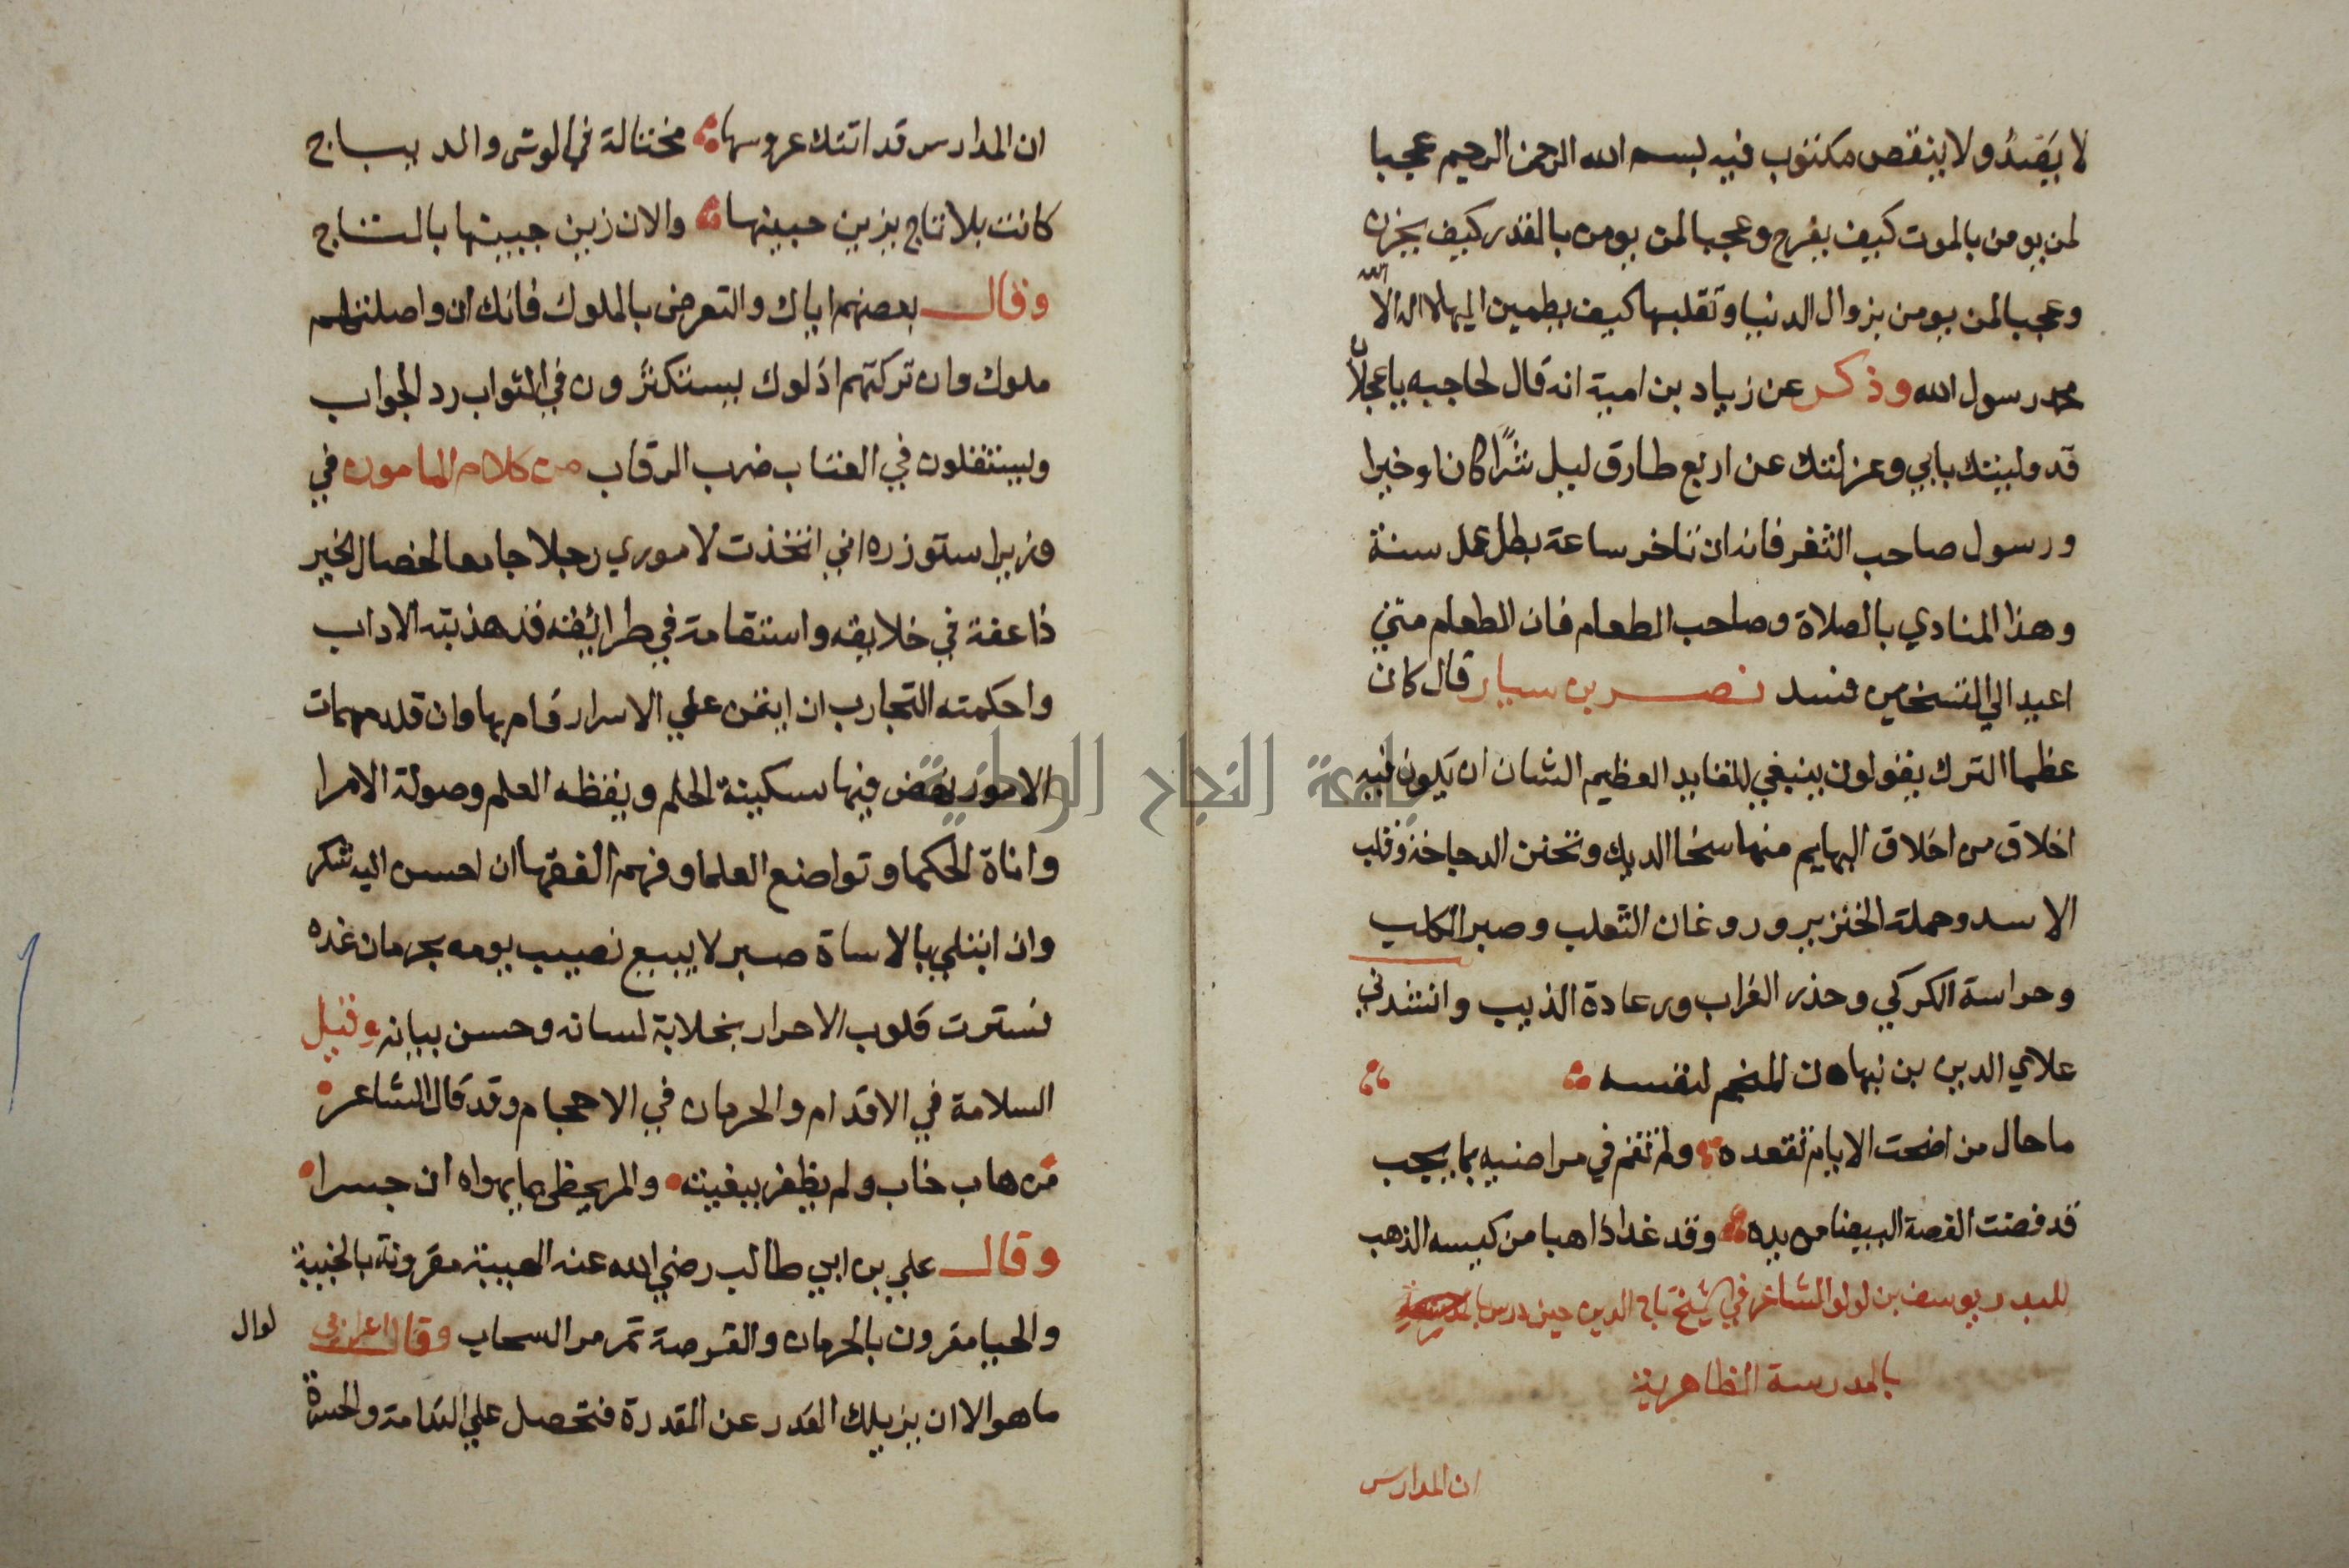 لا يزيد ولا ينقص مكتوب فيه بسم الله الرحمن الرحيم عجبا
لمن يومن بالموت كيف يفرح وعجبا لمن يومن بالقدر كيف يحزن
وعجبا لمن يومن بزوال الدنيا وتقلبها كيف يطمين اليها لا اله الا الله
محمد رسول الله وذكر عن زياد بن امية انه قال لحاجبه يا عجلان
قد وليتك بابي وعزلتك عن اربع طارق ليل شرا كان او خيرا
ورسول صاحب الثغر فانه ان تاخر ساعة بطل عمل سنة
وهذا المنادي بالصلاة وصاحب الطعام فان الطعام متي
اعيد الي التسخين فسد نصر بن سيار قال كان
عظما الترك يقولون ينبغي للقايد العظيم الشان ان يكون فيه
اخلاق من اخلاق البهايم منها سخا الديك وتحنن الدجاجة وقلب
الاسد وحملة الخنزير وروغان الثعلب وصبر الكلب
وحراسة الكركي وحذر الغراب وعادة الذيب وانشدني
علاي الدين بن نبهان المنجم لنفسه
ما حال من اضحت الايام تقعده ولم تقم في مراضيه بما يجب
قد فضت الفضة البيضا من يده وقد غدا ذاهبا من كيسه الذهب
للبدر يوسف بن لولو الشاعر في الشيخ تاج الدين حين درس
بالمدرسة الظاهرية
ان المدارس
ان المدارس قد اتتك عروسها مختالة في الوشي والديباج
كانت بلا تاج يزين جبينها والان زين جبينها بالتاج
وقال بعضهم اياك والتعرض بالملوك فانك ان واصلتهم
ملوك وان تركتهم اذلوك يستكثرون في الثواب رد الجواب
ويستقلون في العتاب ضرب الرقاب من كلام المامون في
وزير استوزره اني اتخذت لاموري رجلا جامعا لخصال الخير
ذا عفة في خلايقه واستقامة في طرائقه قد هذبته الاداب
واحكمته التجارب ان ايتمن علي الاسرار قام بها وان قلد مهمات
الامور نهض فيها سكينة الحلم ويقظه العلم وصولة الامرا
واناة الحكما وتواضع العلما وفهم الفقها ان احسن اليه شكر
وان ابتلي بالاساة صبر لا يبيع نصيب يومه بحرمان غده
تسترت قلوب الاحرار بخلابة لسانه وحسن بيانه وقيل
السلامة في الاقدام والحرمان في الاحجام وقد قال الشاعر
من هاب خاب ولم يظفر ببغيته والمر يحظى بما يهواه ان جسرا
وقال علي بن ابي طالب رضي الله عنه الهيبة مقرونة بالخيبة
والحيا مقرون بالحرمان والفرصة تمر مر السحاب وقال اعرابي
ما هو الا ان يزيلك القدر عن المقدرة فتحصل علي الندامة والحسرة